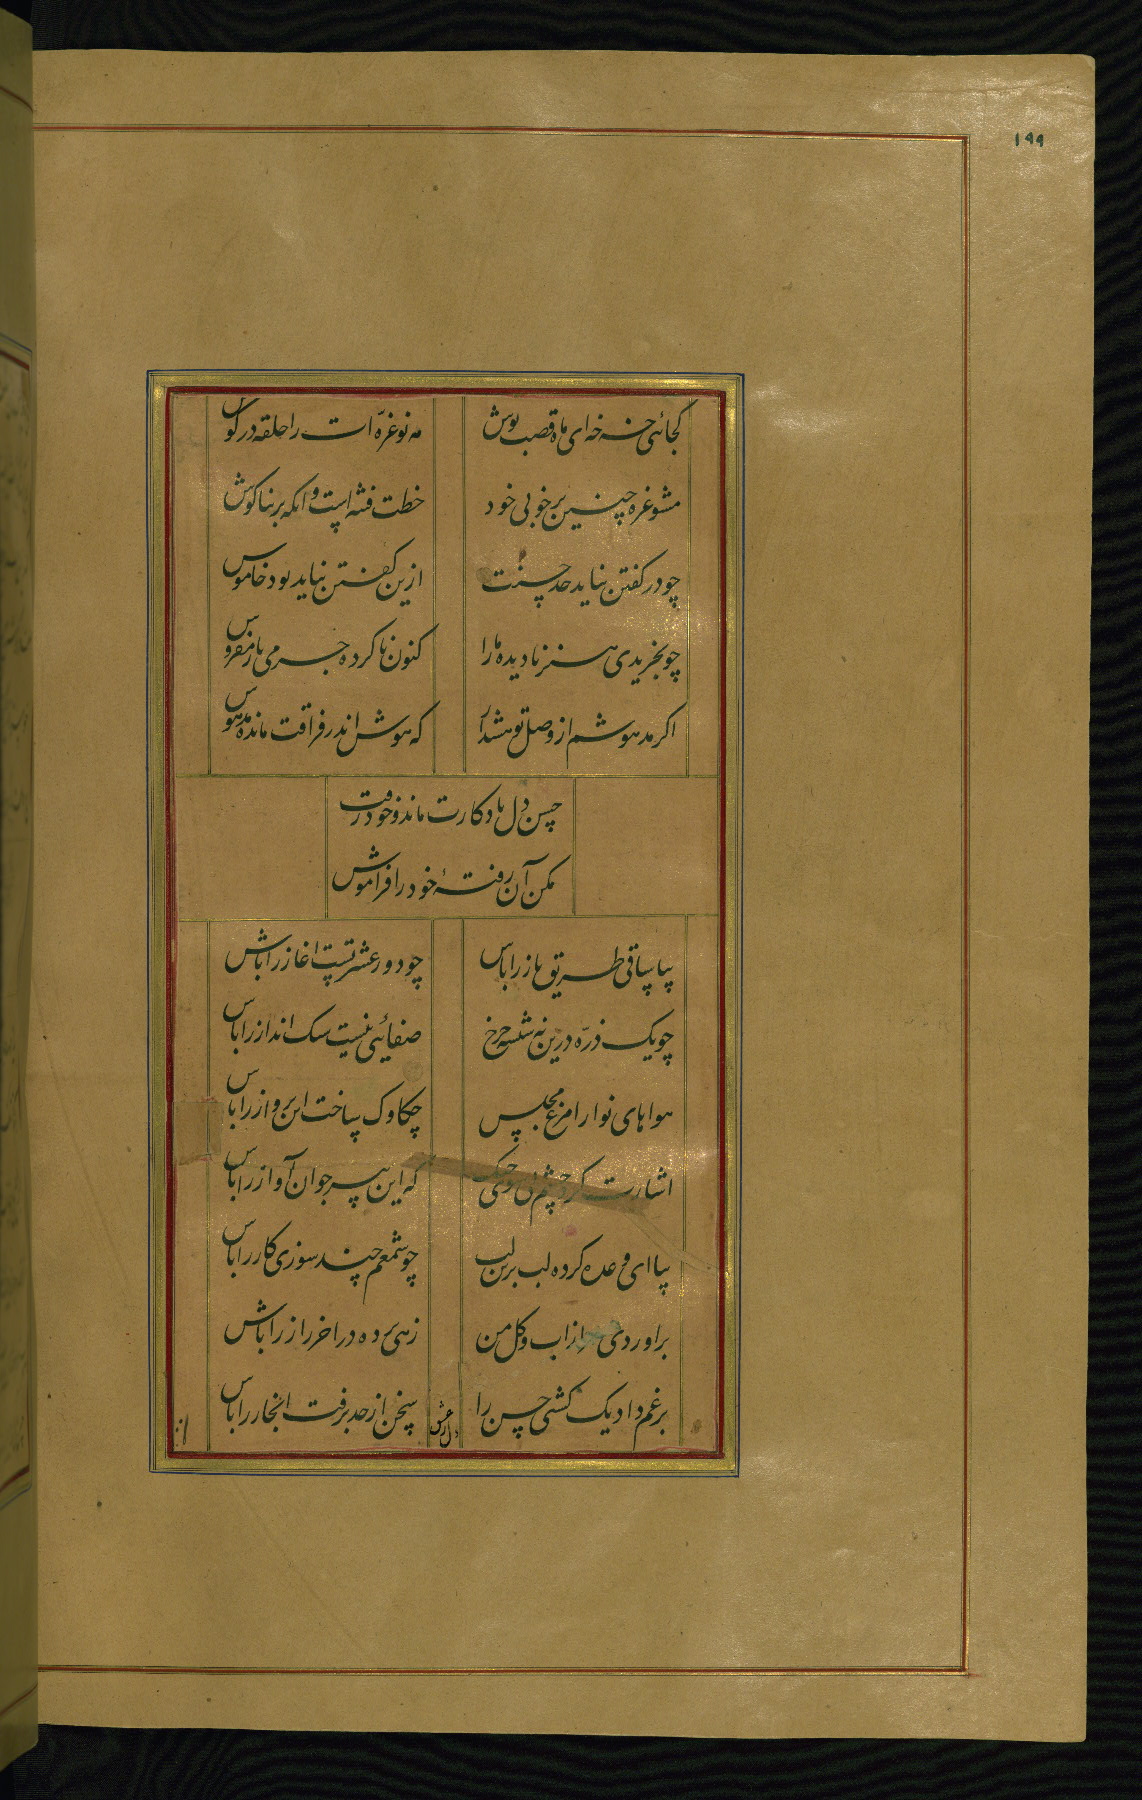 ۱۹۹
کجائی خه خه ای ماه قصب پوش
مه نو غرّه ات را حلقه در گوش
مشو غره چنین بر خوبی خود
خطت فتنه است وانکه بر بناکوش
چو در کفتن نیاید حد حسنت
ازین کفتن بباید بود خاموش
چو بخریدی بنز نادیده ما را
کنون ناکرده جرمی باز مفروش
اکر مدهوشم از وصل تو هشدار
که هوش اندر فراقت مانده مدهوش
حسن دل باد کارت ماند و خود رفت
مکن آن رفتهٔ خود را فراموش
بیا ساقی طریق باز را باش
چو دور عشرتست اغاز را باش
چو یک ذرّه درین نه شیشه چرخ
صفائی نیست سنک انداز را باش
هواهای نوا را مرغ مجلس
چکاوک ساخت این پرواز را باش
اشارت کرد چشم نی چو چنکی
که این پیر جوان آواز را باش
بیا ای وعده کرده لب برین لب
چو شمعم چند سوزی کار را باش
براوردی راز اب و کل من
زهی پرده در اخر راز را باش
برغم داد یک کشی حسن را
سخن از حد برفت انجاز را باش